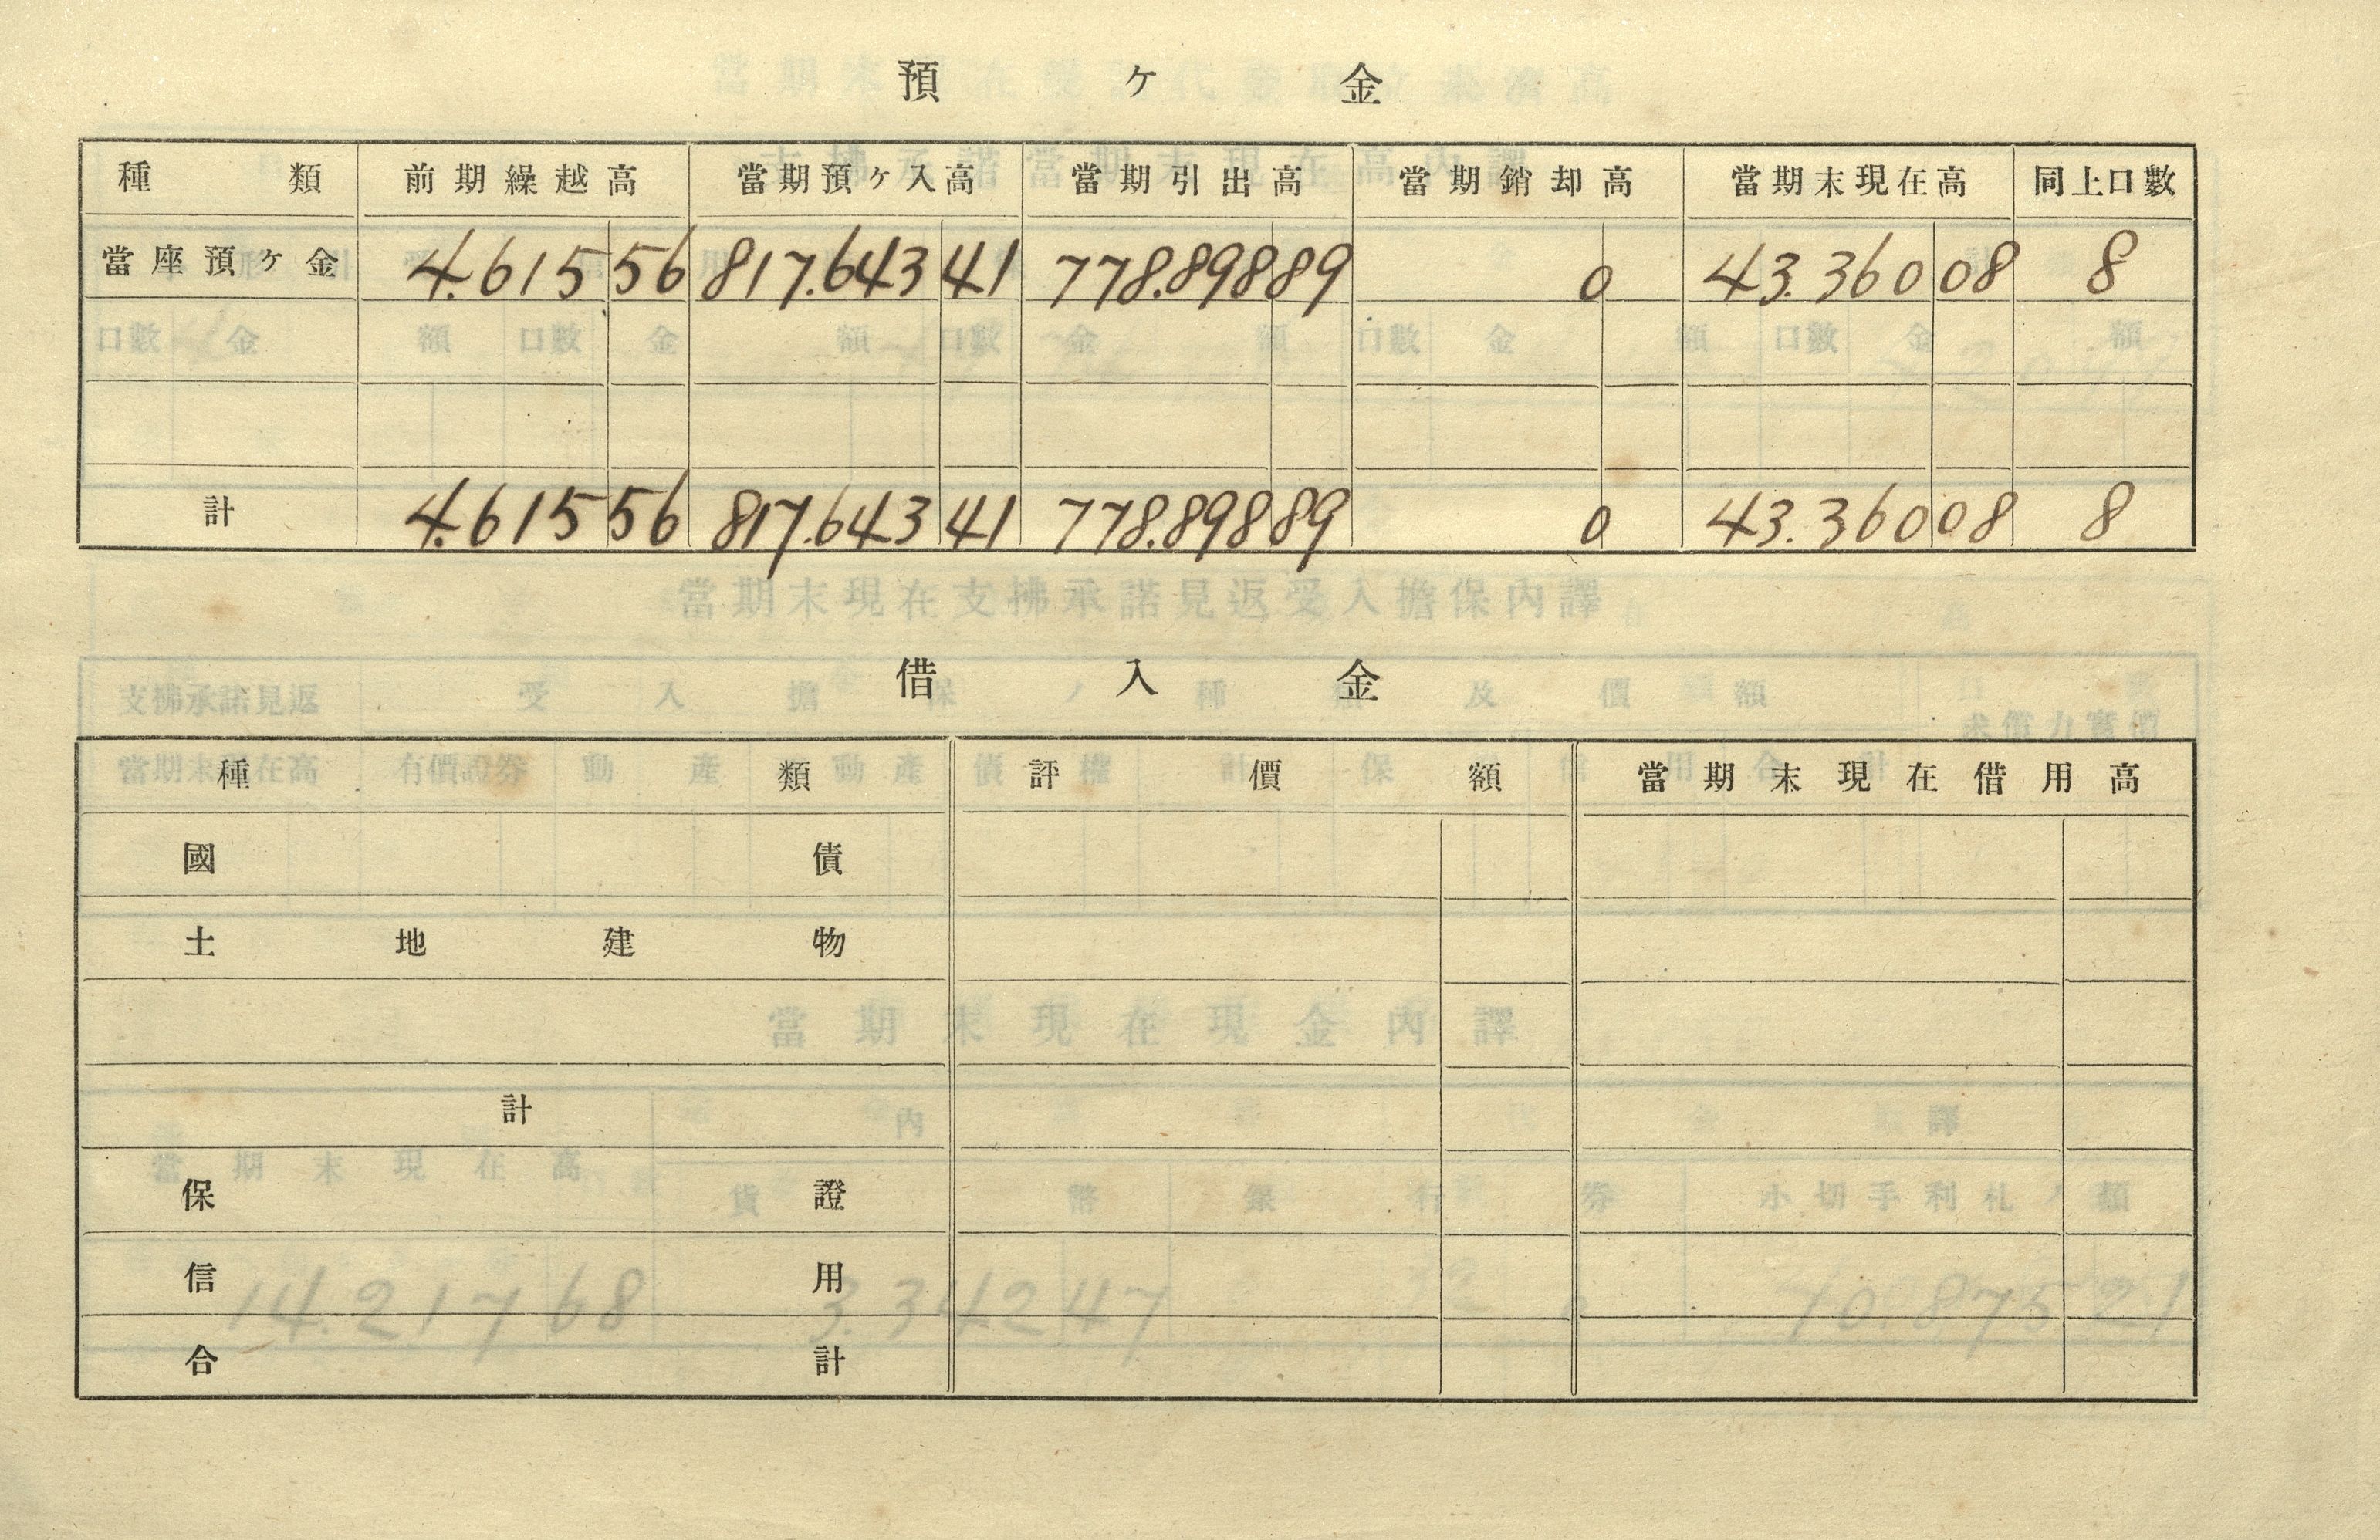 預ヶ金
種類 前期繰越高 當期預ヶ入高 當期引出高 當期銷却高 當期末現在高 同上口數
當座預ヶ金 4.615 56 817.643 41 778.898 89 0 43.360 08 8
計 4.615 56 817.643 41 778.898 89 0 43.360 08 8
借入金
種類 評價額 當期末現在借用高
國債
土地建物
計
保證
信用
合計